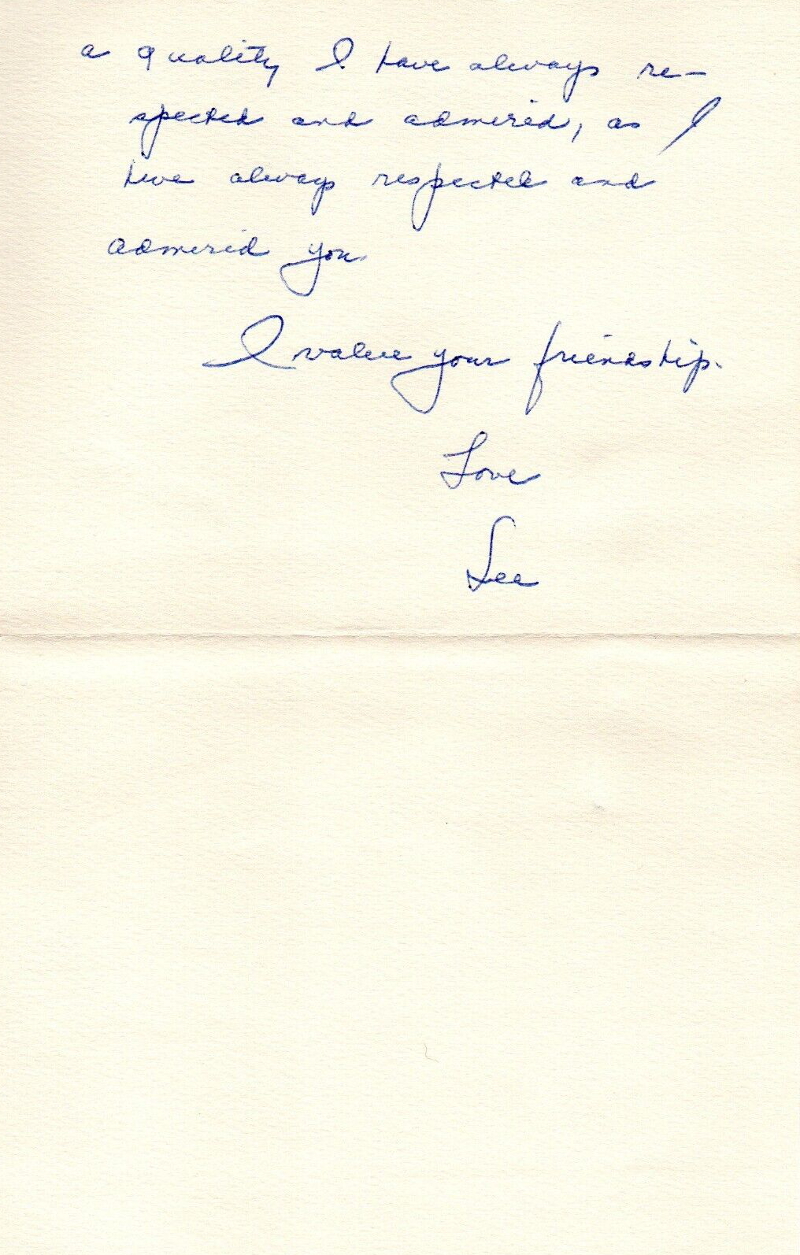 a quality I have always re-
spected and admired, as I
have always respected and
admired you.
I value your friendship.
Love
Lee